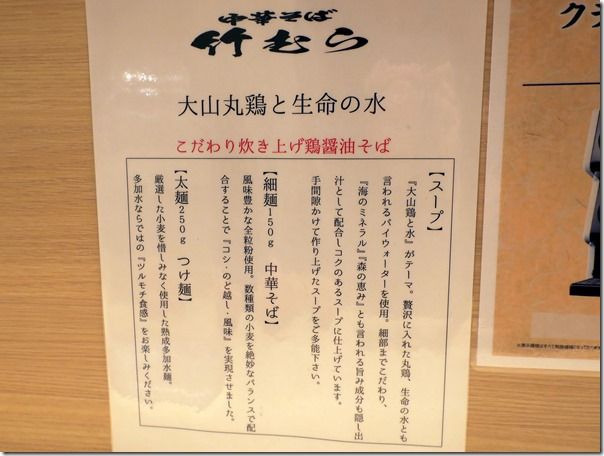 中華そば
竹むら
大山丸鶏と生命の水
こだわり炊き上げ鶏醤油そば
【スープ】
『大山鶏と水』がテーマ。贅沢に入れた丸鶏、生命の水とも
言われるパイウォーターを使用。細部までこだわり、
『海のミネラル』『森の恵み』とも言われる旨み成分も隠し出
汁として配合しコクのあるスープに仕上げています。
手間隙かけて作り上げたスープをご多能下さい。
【細麺150g 中華そば】
風味豊かな全粒粉使用。数種類の小麦を絶妙なバランスで配
合することで『コシ・のど越し・風味』を実現させました。
【太麺250g つけ麺】
厳選した小麦を惜しみなく使用した熟成多加水麺。
多加水ならではの『ツルモチ食感』をお楽しみください。